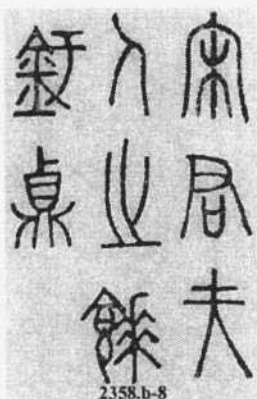 宋君夫
人之餗
釪鼎
2358.b-8